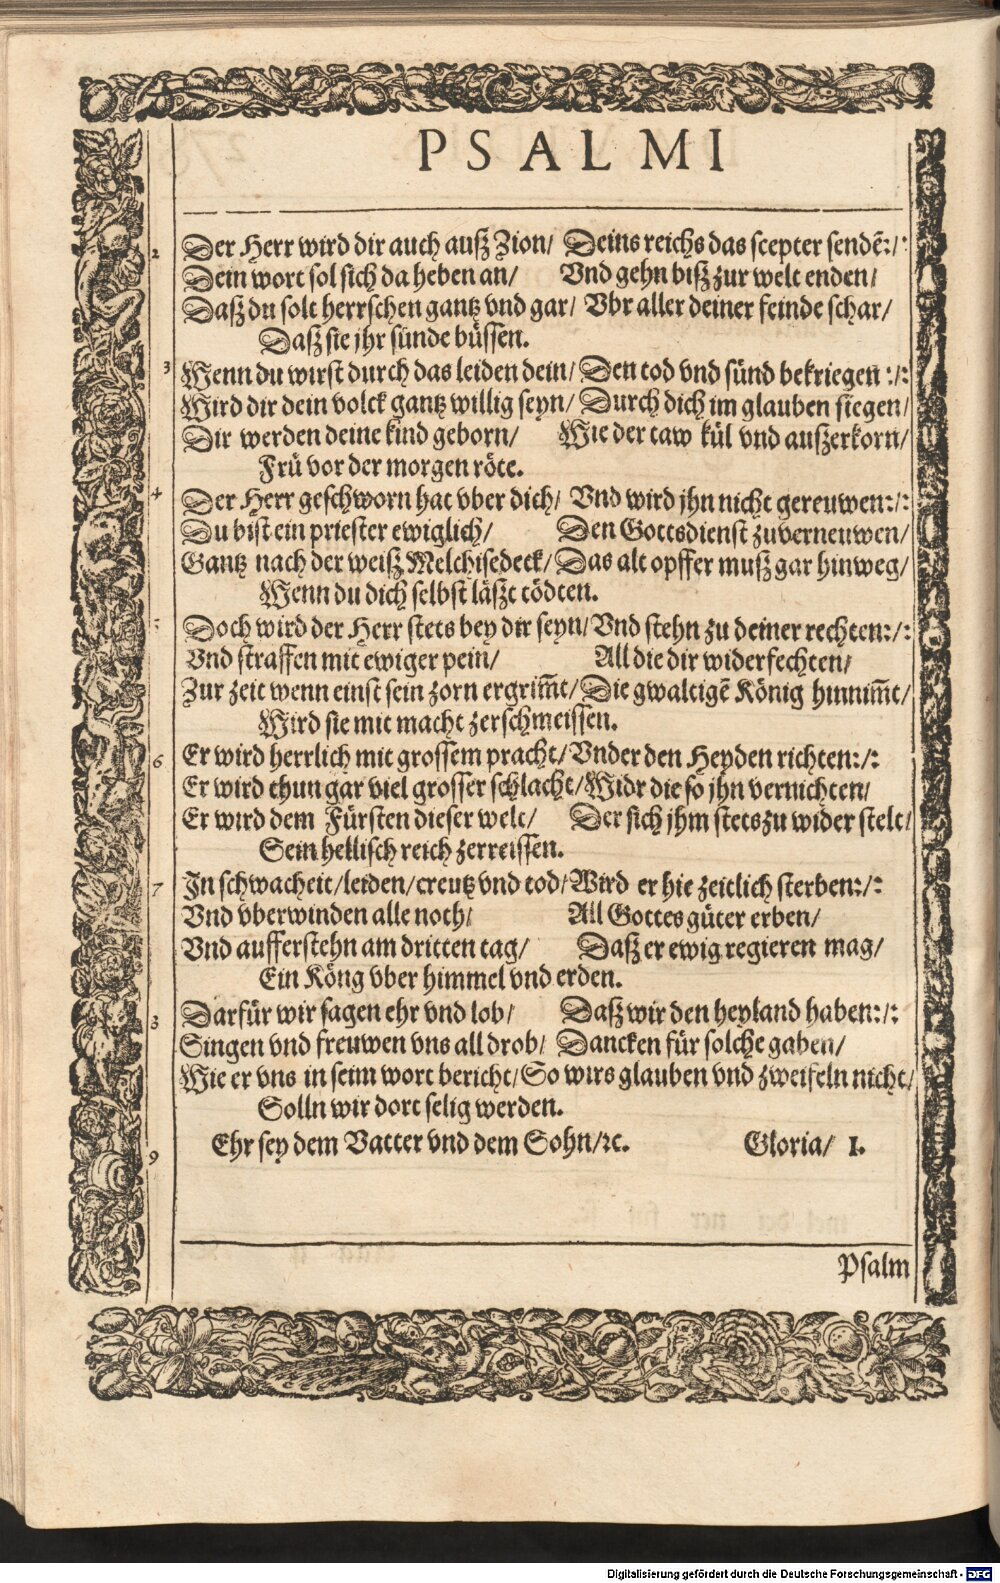 PSALMI
2 Der Herr wird dir auch auß Zion/ Deins reichs das scepter sendẽ:/:
Dein wort sol sich da heben an/ Vnd gehn biß zur welt enden/
Daß du solt herrschen gantz vnd gar/ Vbr aller deiner feinde schar/
Daß sie jhr sünde büssen.
3 Wenn du wirst durch das leiden dein/ Den tod vnd sünd bekriegen:/:
Wird dir dein volck gantz willig seyn/ Durch dich im glauben siegen/
Dir werden deine kind geborn/ Wie der taw kül vnd außerkorn/
Frü vor der morgen röte.
4 Der Herr geschworn hat vber dich/ Vnd wird jhn nicht gereuwen:/:
Du bist ein priester ewiglich/ Den Gottsdienst zuverneuwen/
Gantz nach der weiß Melchisedeck/ Das alt opffer muß gar hinweg/
Wenn du dich selbst läßt tödten.
5 Doch wird der Herr stets bey dir seyn/ Vnd stehn zu deiner rechten:/:
Vnd straffen mit ewiger pein/ All die dir widerfechten/
Zur zeit wenn einst sein zorn ergrim̃t/ Die gwaltigẽ König hinnim̃t/
Wird sie mit macht zerschmeissen.
6 Er wird herrlich mit grossem pracht/ Vnder den Heyden richten:/:
Er wird thun gar viel grosser schlacht/ Widr die so jhn vernichten/
Er wird dem Fürsten dieser welt/ Der sich jhm stets zu wider stelt/
Sein hellisch reich zerreissen.
7 In schwacheit/ leiden/ creutz vnd tod/ Wird er hie zeitlich sterben:/:
Vnd vberwinden alle noth/ All Gottes güter erben/
Vnd aufferstehn am dritten tag/ Daß er ewig regieren mag/
Ein Köng vber himmel vnd erden.
8 Darfür wir sagen ehr vnd lob/ Daß wir den heyland haben:/:
Singen vnd freuwen vns all drob/ Dancken für solche gaben/
Wie er vns in seim wort bericht/ So wirs glauben vnd zweifeln nicht/
Solln wir dort selig werden.
9 Ehr sey dem Vatter vnd dem Sohn/ ꝛc. Gloria/ 1.
Psalm
Digitalisierung gefördert durch die Deutsche Forschungsgemeinschaft - DFG